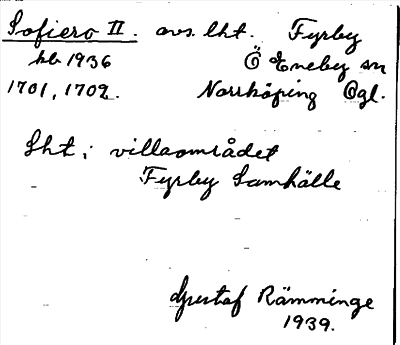 Sofiero II. avs. lht. Fyrby
hb 1936 Ö Eneby sn
1701, 1702. Norrköping Ögl.
Lht i villaområdet
Fyrby Samhälle
Gustaf Rämminge
1939.